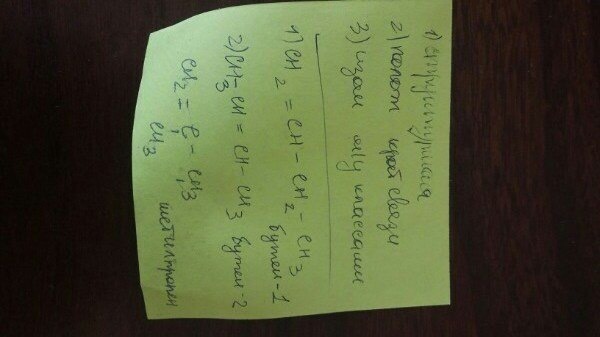 1) структурная
2) полож крат связи
3) изом м/у классами
1) CH2 = CH - CH2 - CH3
бутен-1
2) CH3 - CH = CH - CH3 бутен-2
CH2 = C - CH3
CH3 метилпропен